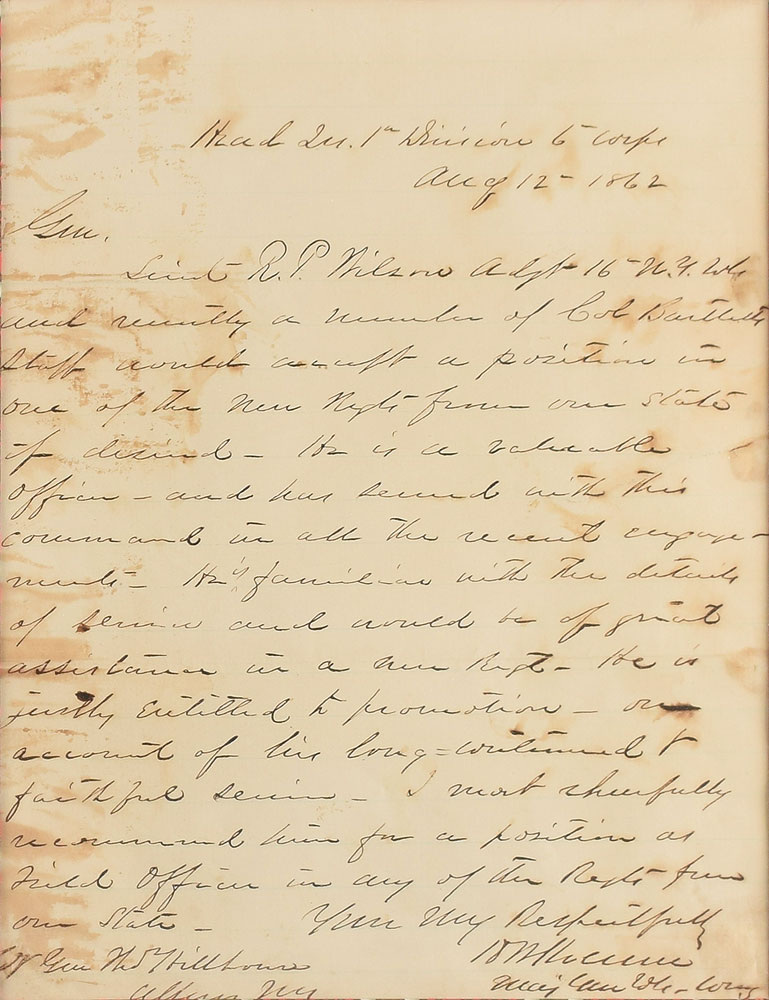 Head Qrs. 1st Division 6 Corps
Aug 12 - 1862
Gen.
Lieut R. P. Wilson Adjt 16 - N.Y. Vols
and recently a member of Col Bartletts
staff would accept a position in
one of the new Regts from our State
if desired - He is a valuable
officer - and has served with this
command in all the recent engage-
ments - He is familiar with the details
of service and would be of great
assistance in a new Regt - He is
justly entitled to promotion - on
account of his long=continued &
faithful service - I most cheerfully
recommend him for a position as
Field Officer in any of the Regts from
our State - Your Very Respectfully
H W Slocum
Gen Thos Hillhouse
Maj Gen Vols - Comg
Albany NY